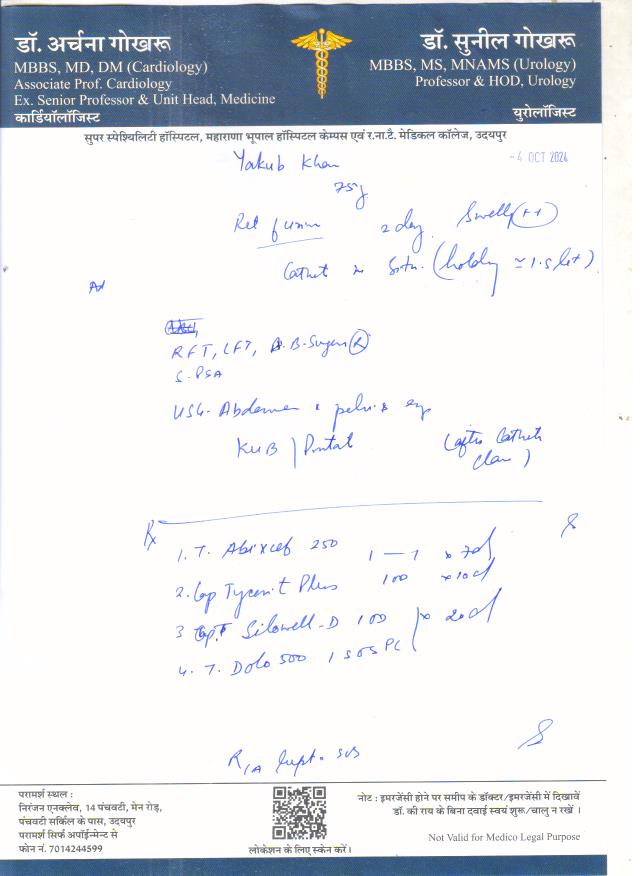 डॉ. अर्चना गोखरू
MBBS, MD, DM (Cardiology)
Associate Prof. Cardiology
Ex. Senior Professor & Unit Head, Medicine
कार्डियॉलॉजिस्ट
डॉ. सुनील गोखरू
MBBS, MS, MNAMS (Urology)
Professor & HOD, Urology
युरोलॉजिस्ट
सुपर स्पेश्यिलिटी हॉस्पिटल, महाराणा भूपाल हॉस्पिटल केम्पस एवं र.ना.टै. मेडिकल कॉलेज, उदयपुर
Yakub Khan
-4 OCT 2024
75y
Ret 2 day Swell (++)
Cathet Situ. (holdy ≃ 1.5 let)
Ad
RFT, LFT, B. Sugar (R)
S. PSA
USG- Abdomen & pelvis
KUB | Prostate (after Catheter
Clam)
Rx
1. T. Abixcef 250 1 — 1 x 7d
2. Cap Tycent Plus 100 x 10d
3 Cap. Silowell-D 100 x 20d
4. T. Dolo 500 1 SOS PC
R/A SOS
परामर्श स्थल :
निरंजन एनक्लेव, 14 पंचवटी, मेन रोड़,
पंचवटी सर्किल के पास, उदयपुर
परामर्श सिर्फ अपॉईन्मेन्ट से
फोन नं. 7014244599
लोकेशन के लिए स्केन करें।
नोट : इमरजेंसी होने पर समीप के डॉक्टर/इमरजेंसी में दिखावें
डॉ. की राय के बिना दवाई स्वयं शुरू/चालु न रखें ।
Not Valid for Medico Legal Purpose